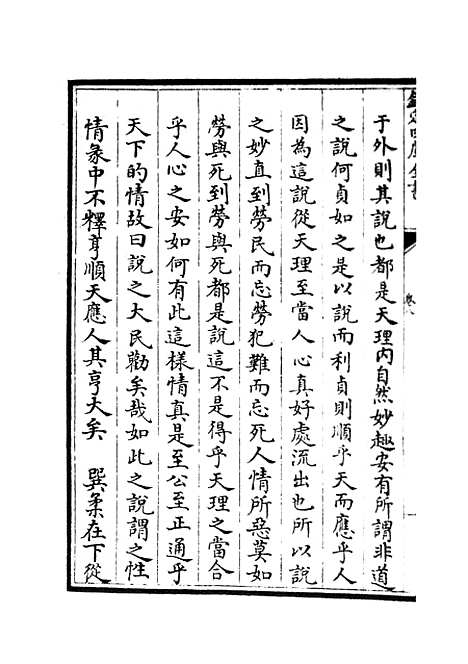 欽定四庫全書
卷八
于外則其說也都是天理内自然妙趣安有所謂非道
之說何貞如之是以說而利貞則順乎天而應乎人
因為這說從天理至當人心真好處流出也所以說
之妙直到勞民而忘勞犯難而忘死人情所惡莫如
勞與死到勞與死都是說這不是得乎天理之當合
乎人心之安如何有此這樣情真是至公至正通乎
天下的情故曰說之大民勸矣哉如此之說謂之性
情彖中不釋亨順天應人其亨大矣　巽柔在下從